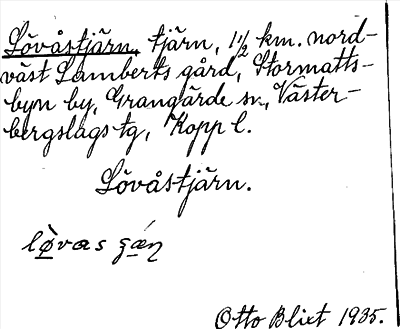 Lövåstjärn, tjärn, 1 1/2 km. nord-
väst Lamberts gård, Stormatts-
byn by, Grangärde sn., Väster-
bergslags tg, Kopp l.
Lövåstjärn.
Otto Blixt 1935.